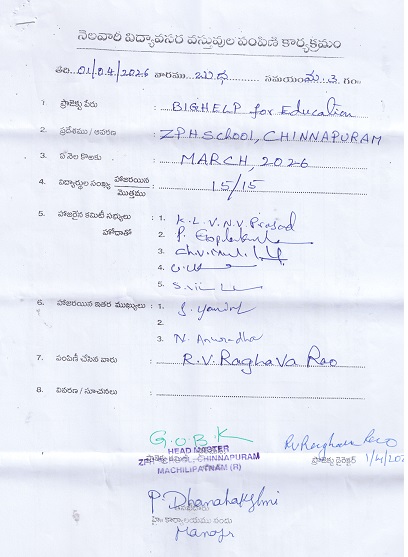 నెలవారీ విద్యావసర వస్తువుల పంపిణీ కార్యక్రమం
తేది. 01/04/2026 వారము బుధ సమయం మ. 3 గం.
1. ప్రాజెక్టు పేరు : BIGHELP for Education
2. ప్రదేశము / ఆవరణ : ZPH School, CHINNAPURAM
3. ఏ నెల కొరకు : MARCH, 2026
4. విద్యార్థుల సంఖ్య హాజరయిన / మొత్తము : 15/15
5. హాజరైన కమిటీ సభ్యులు : 1. K.L.V.N.V. Prasad
హోదాతో 2.
3.
4.
5.
6. హాజరయిన ఇతర ముఖ్యులు : 1.
2.
3. N. Anuradha
7. పంపిణీ చేసిన వారు : R.V. Raghava Rao
8. వివరణ / సూచనలు :
G.U.B.K
HEAD MASTER
ZPH SCHOOL, CHINNAPURAM
MACHILIPATNAM (R)
RV Raghava Rao
ప్రాజెక్టు డైరెక్టర్ 1/4/202
P. Dhanalakshmi
Manager